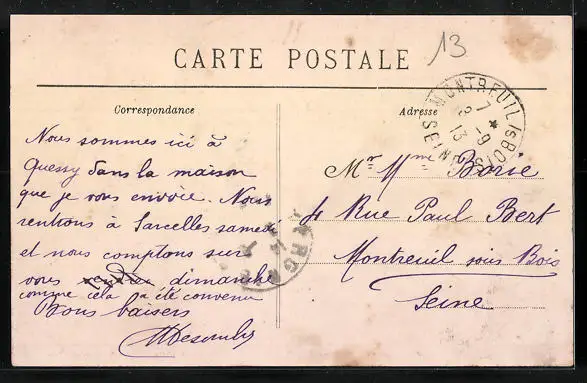 13
CARTE POSTALE
Correspondance
Adresse
MONTREUIL S BOIS
7 * 9
13
SEINE
Nous sommes ici à
Quessy dans la maison
que je vous envoie. Nous
rentrons à Sarcelles samedi
et nous comptons sur
vous dimanche
comme cela a été convenu
Bons baisers
Mr Mme Borie
4 Rue Paul Bert
Montreuil sous Bois
Seine